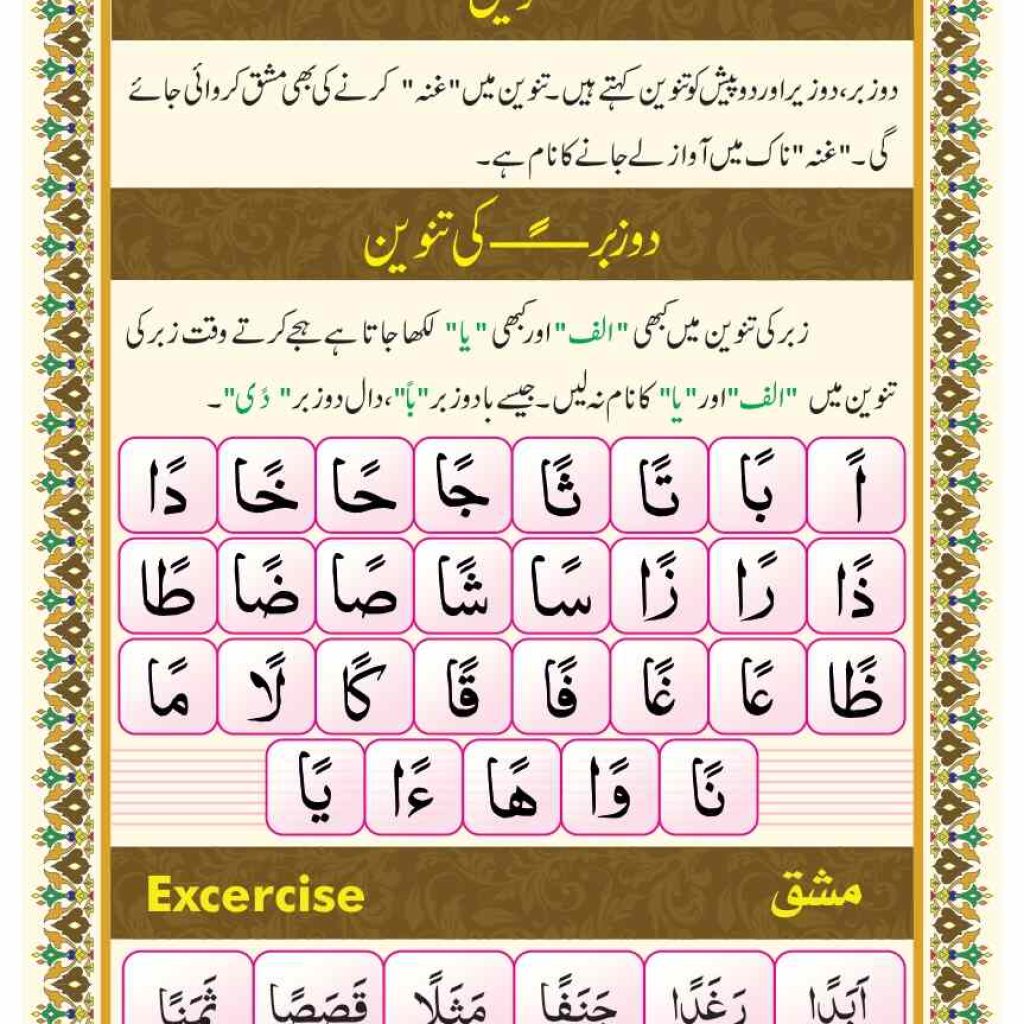 دو زبر، دو زیر اور دو پیش کو تنوین کہتے ہیں۔ تنوین میں "غنہ" کرنے کی بھی مشق کروائی جائے
گی۔ "غنہ" ناک میں آواز لے جانے کا نام ہے۔
دو زبر ـًـ کی تنوین
زبر کی تنوین میں کبھی "الف" اور کبھی "یا" لکھا جاتا ہے ہجے کرتے وقت زبر کی
تنوین میں "الف" اور "یا" کا نام نہ لیں۔ جیسے با دو زبر "باً"، دال دو زبر "دًی"۔
اً بًا تًا ثًا جًا حًا خًا دًا
ذًا رًا زًا سًا شًا صًا ضًا طًا
ظًا عًا غًا فًا قًا كًا لًا مًا
نًا وًا هًا ءًا يًا
مشق Excercise
اَبَدًا رَغَدًا جَنَفًا مَثَلًا قَصَصًا ثَمَنًا